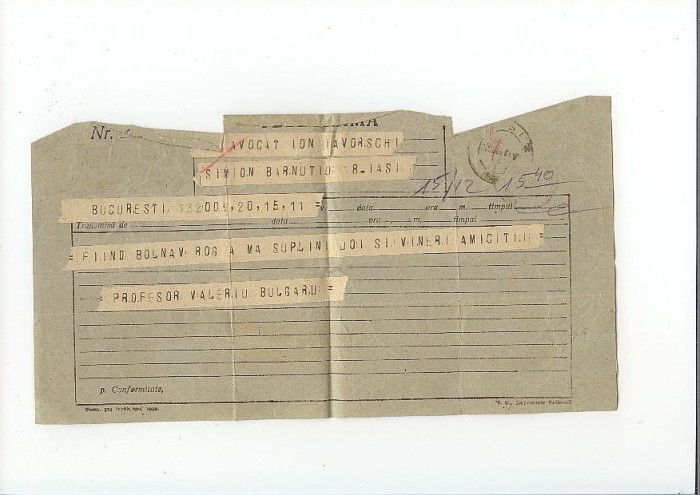 Nr.
AVOCAT ION IAVORSCHI
SIMION BARNUTIU IASI
15/12 15 40
BUCURESTI 20, 15, 11 =
data ora m. timpul
Transmină de data ora m. timpul
= FIIND BOLNAV ROG A MA SUPLINI JOI SI VINERI AMICITII =
= PROFESOR VALERIU BULGARU =
p. Conformitate,